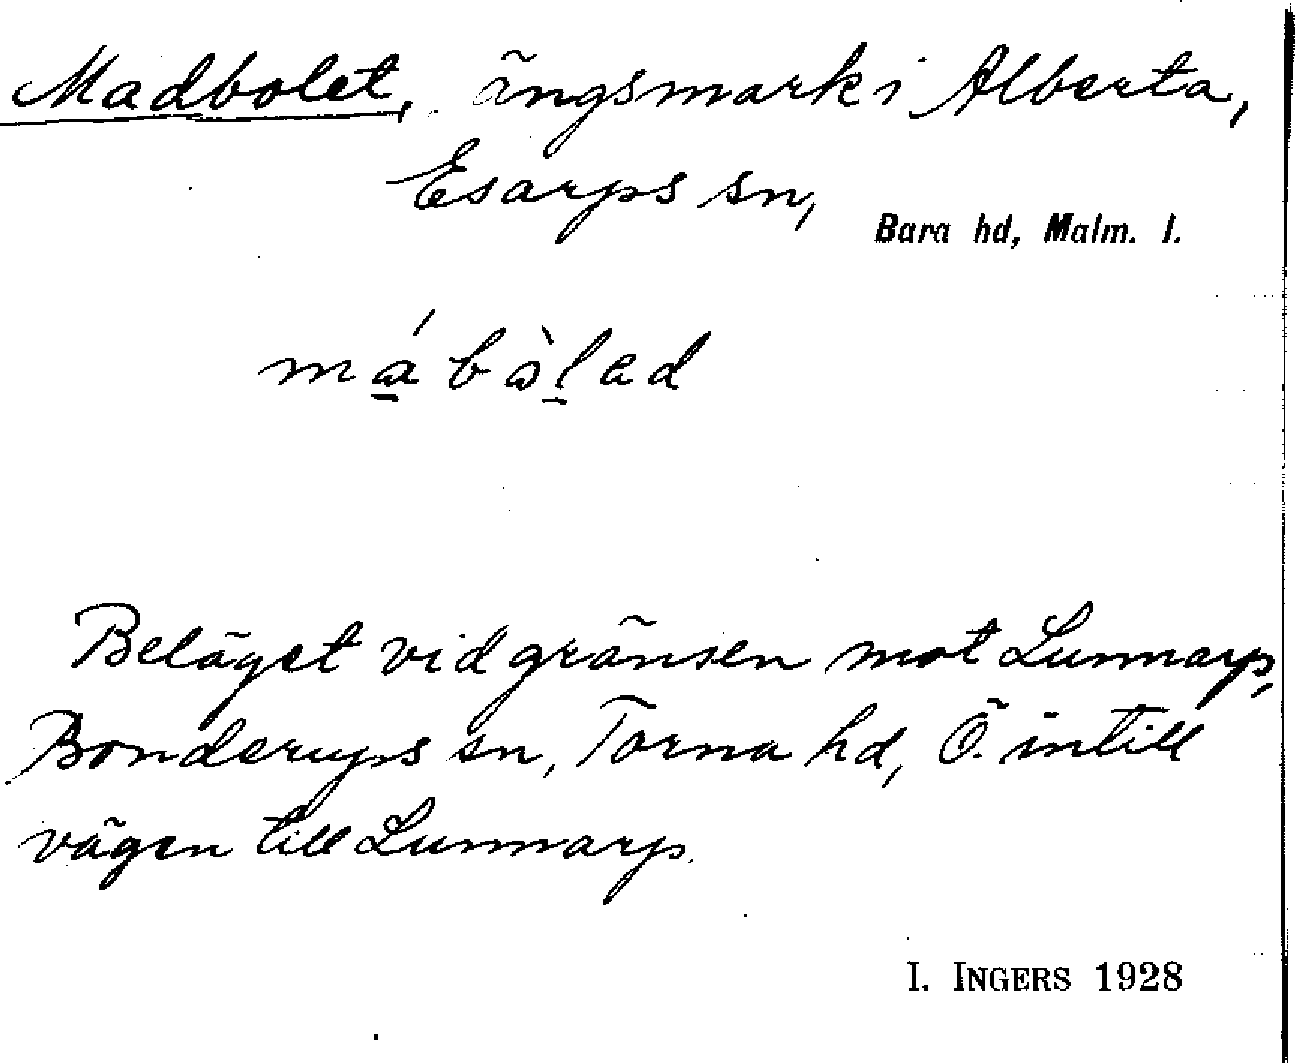 Madbolet, ängsmark i Alberta,
Esarps sn,
Bara hd, Malm. l.
má̱bàḻad
Beläget vid gränsen mot Lunnarp,
Bonderups sn, Torna hd, Ö. intill
vägen till Lunnarp.
I. INGERS 1928